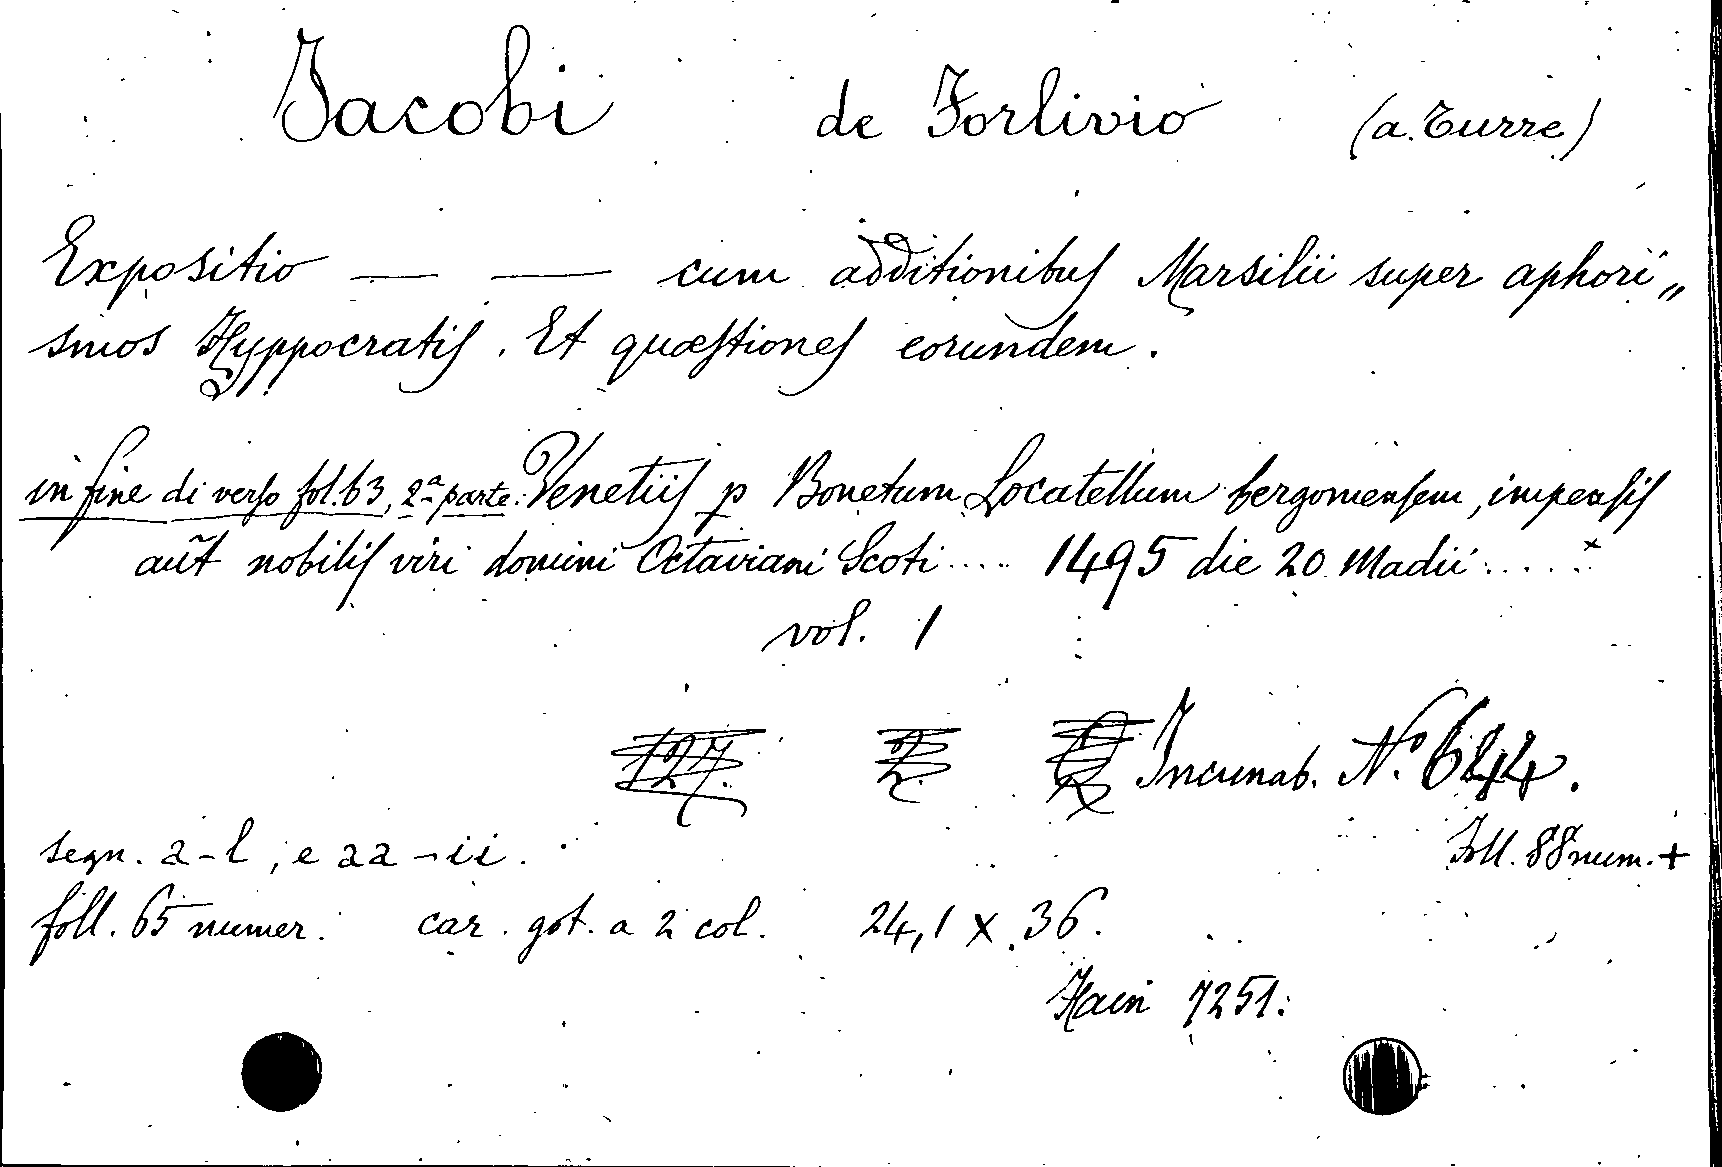 Jacobi de Forlivio (a. Turre)
Expositio — — cum additionibus Marsilii super aphori„
smos Hyppocratis. Et quæstiones eorundem.
in fine di verso fol. 63, 2ª parte: Venetiis p Bonetum Locatellum bergomensem, impensis
aũt nobilis viri domini Octaviani Scoti .... 1495 die 20 Madii .....
vol. 1
127. 2. Incunab. Nº 644.
segn. a-l, e aa-ii. Foll. 88 num. +
foll. 65 numer. car. got. a 2 col. 24,1 x 36.
Hain 7251.